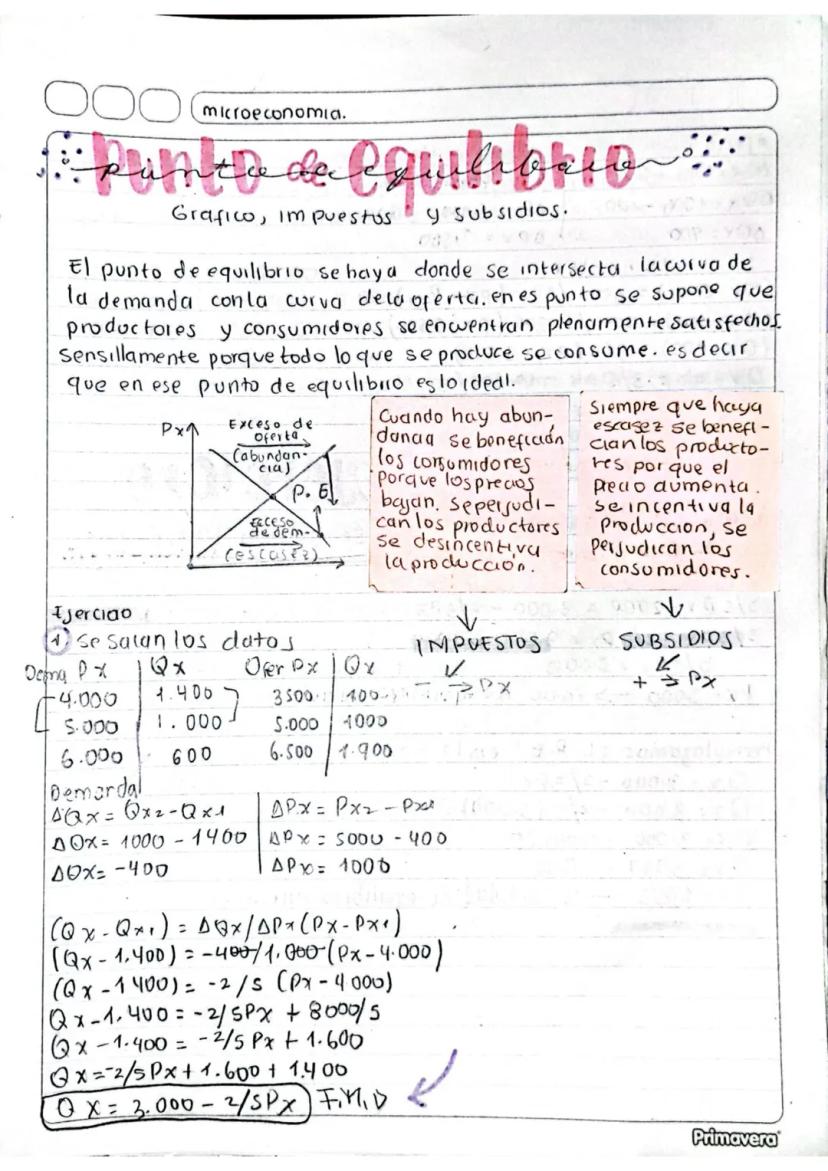 microeconomia.
Punto de equilibrio
punto de equilibrio
Grafico, impuestos y subsidios.
El punto de equilibrio se haya donde se intersecta la curva de
la demanda con la curva de la oferta. en es punto se supone que
productores y consumidores se encuentran plenamente satisfechos
sensillamente porque todo lo que se produce se consume. es decir
que en ese punto de equilibrio es lo ideal.
Px
Exceso de
oferta
(abundan-
cia)
P. E
Exceso
de dem-
(escasez)
Cuando hay abun-
dancia se benefician
los consumidores
porque los precios
bajan. se perjudi-
can los productores
se desincentiva
la producción.
Siempre que haya
escasez se benefi-
cian los producto-
res por que el
precio aumenta.
se incentiva la
Producción, se
perjudican los
consumidores.
↓ IMPUESTOS
- → Px
↓ SUBSIDIOS
+ → Px
Ejercicio
1) Se sacan los datos
Dema Px | Qx Ofer Px | Qx
4.000 | 1.400 3500 | 100
5.000 | 1.000 5.000 | 1000
6.000 | 600 6.500 | 1.900
Demanda
ΔQx = Qx2 - Qx1 | ΔPx = Px2 - Px1
ΔQx = 1000 - 1400 | ΔPx = 5000 - 400
ΔQx = -400 | ΔPx = 1000
(Qx - Qx1) = ΔQx/ΔPx (Px - Px1)
(Qx - 1.400) = -400/1.000 (Px - 4.000)
(Qx - 1400) = -2/5 (Px - 4000)
Qx - 1.400 = -2/5Px + 8000/5
Qx - 1.400 = -2/5 Px + 1.600
Qx = -2/5Px + 1.600 + 1.400
Qx = 3.000 - 2/5Px F.M.D
Primavera